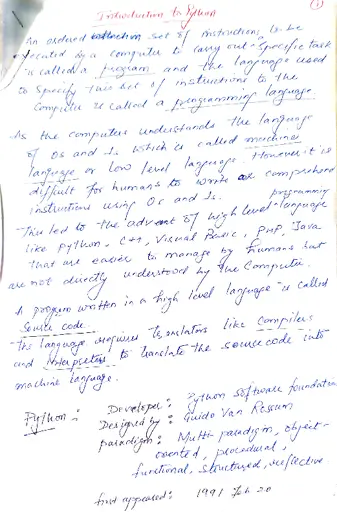 Introduction to Python
①
An ordered collection set of instructions to be
executed by a computer to carry out a specific task
is called a program and the language used
to specify this set of instructions to the
computer is called a programming language.
As the computer understands the language
of 0s and 1s which is called machine
language or low level language. However it is
difficult for humans to write or comprehend
instructions using 0s and 1s.
This led to the advent of high level programming language
like python, C++, Visual Basic, PHP, Java
that are easier to manage by humans but
are not directly understood by the computer.
A program written in a high level language is called
Source code.
The language required translators like compilers
and interpreters to translate the source code into
machine language.
Python : Developer : Python software foundation
Designed by : Guido Van Rossum
paradigm : Multi paradigm, object-
oriented, procedural,
functional, structured, reflective
first appeared : 1991 Feb 20